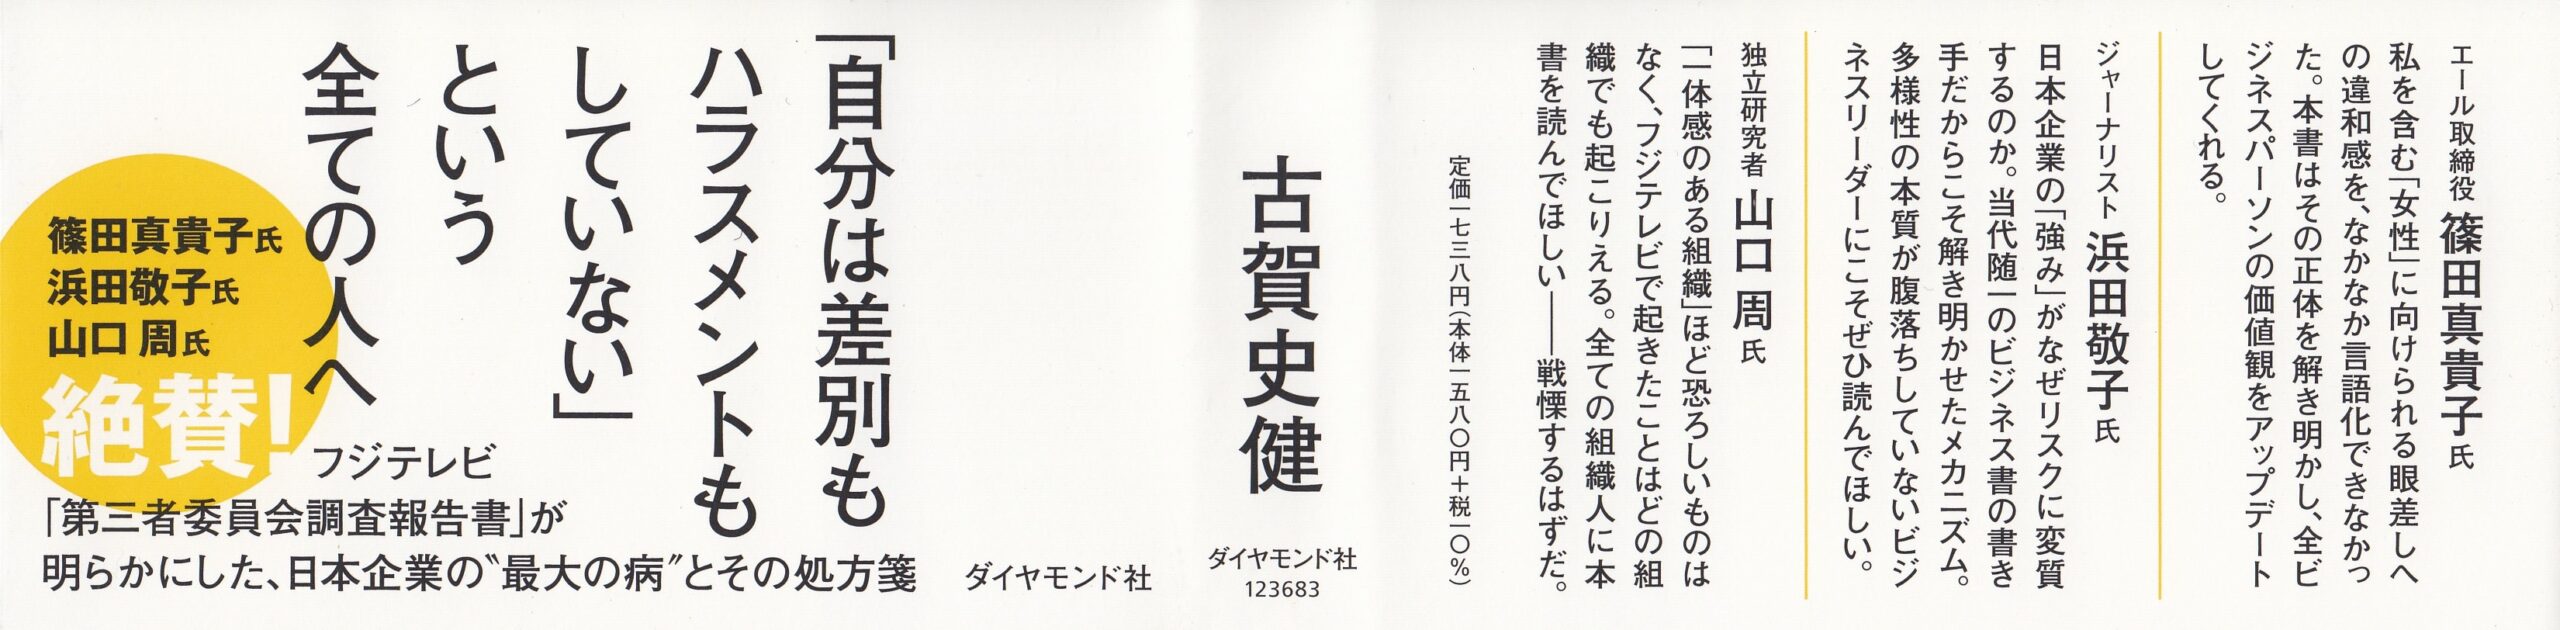 「自分は差別も
ハラスメントも
していない」
という
全ての人へ
篠田真貴子氏
浜田敬子氏
山口 周氏
絶賛!
フジテレビ
「第三者委員会調査報告書」が
明らかにした、日本企業の〝最大の病〟とその処方箋
ダイヤモンド社
古賀史健
ダイヤモンド社
123683
エール取締役 篠田真貴子氏
私を含む「女性」に向けられる眼差しへ
の違和感を、なかなか言語化できなかっ
た。本書はその正体を解き明かし、全ビ
ジネスパーソンの価値観をアップデート
してくれる。
ジャーナリスト 浜田敬子氏
日本企業の「強み」がなぜリスクに変質
するのか。当代随一のビジネス書の書き
手だからこそ解き明かせたメカニズム。
多様性の本質が腹落ちしていないビジ
ネスリーダーにこそぜひ読んでほしい。
独立研究者 山口 周氏
「一体感のある組織」ほど恐ろしいものは
なく、フジテレビで起きたことはどの組
織でも起こりえる。全ての組織人に本
書を読んでほしい――戦慄するはずだ。
定価一七三八円(本体一五八〇円+税一〇%)